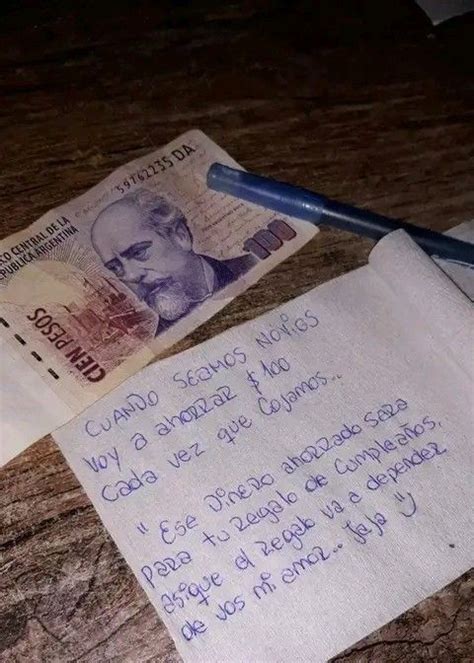 59762235 DA
CO CENTRAL DE LA
REPÚBLICA ARGENTINA
100
CIEN PESOS
CUANDO SEAMOS NOVIOS
voy a ahorrar $100
cada vez que cojamos..
"Ese Dinero ahorrado sera
para tu regalo de cumpleaños,
asique el regalo va a depender
de vos mi amor.. JaJa